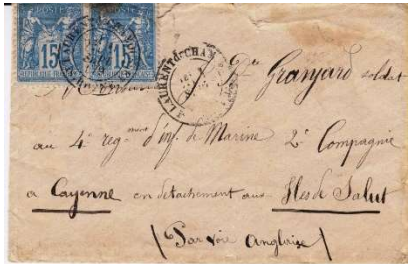 POSTE POSTE
15 15
LAURENT de CHAM
Granjard soldat
au 4e regment d'inf. de Marine 2e Compagnie
a Cayenne en detachement aux Iles de Salut
(Par voie Anglaise)